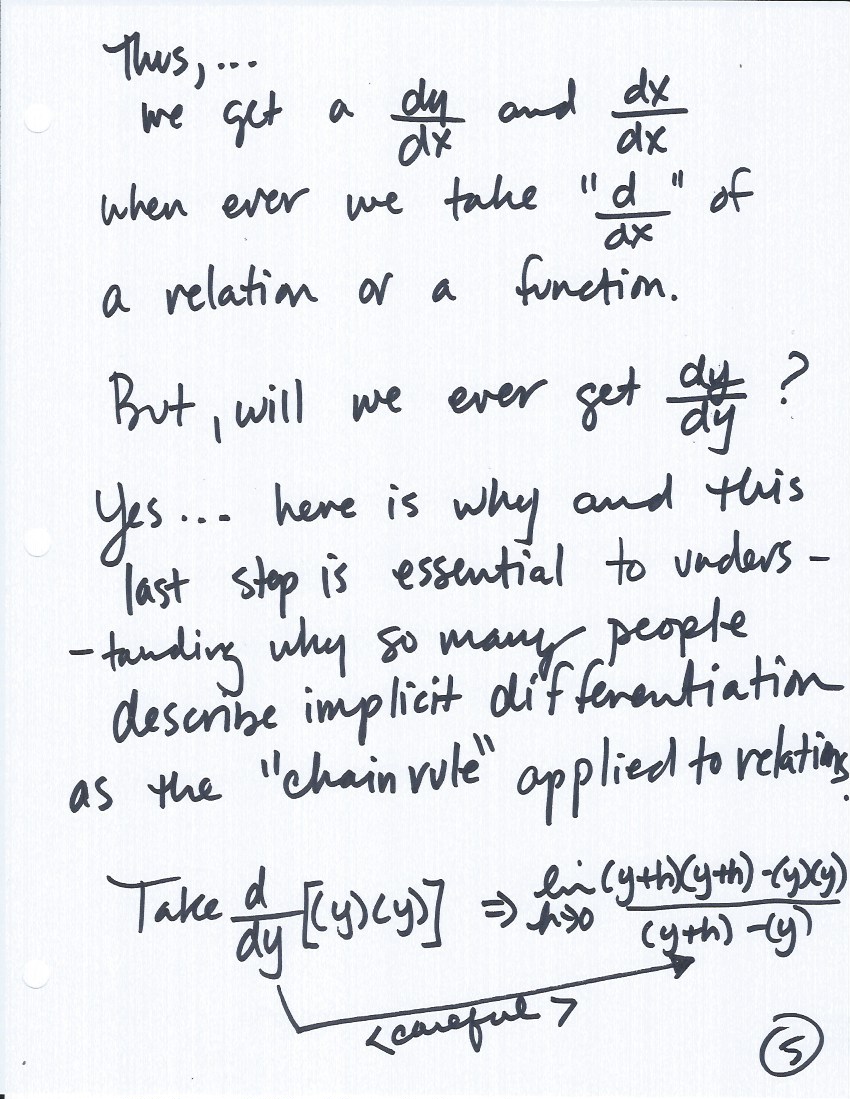 Thus, ...
we get a dy/dx and dx/dx
when ever we take "d/dx" of
a relation or a function.
But, will we ever get dy/dy ?
Yes... here is why and this
last step is essential to unders-
-tanding why so many people
describe implicit differentiation
as the "chain rule" applied to relations.
Take d/dy [(y)(y)] ⇒ lim h→0 ((y+h)(y+h) - (y)(y))/((y+h) - (y))
<careful>
5